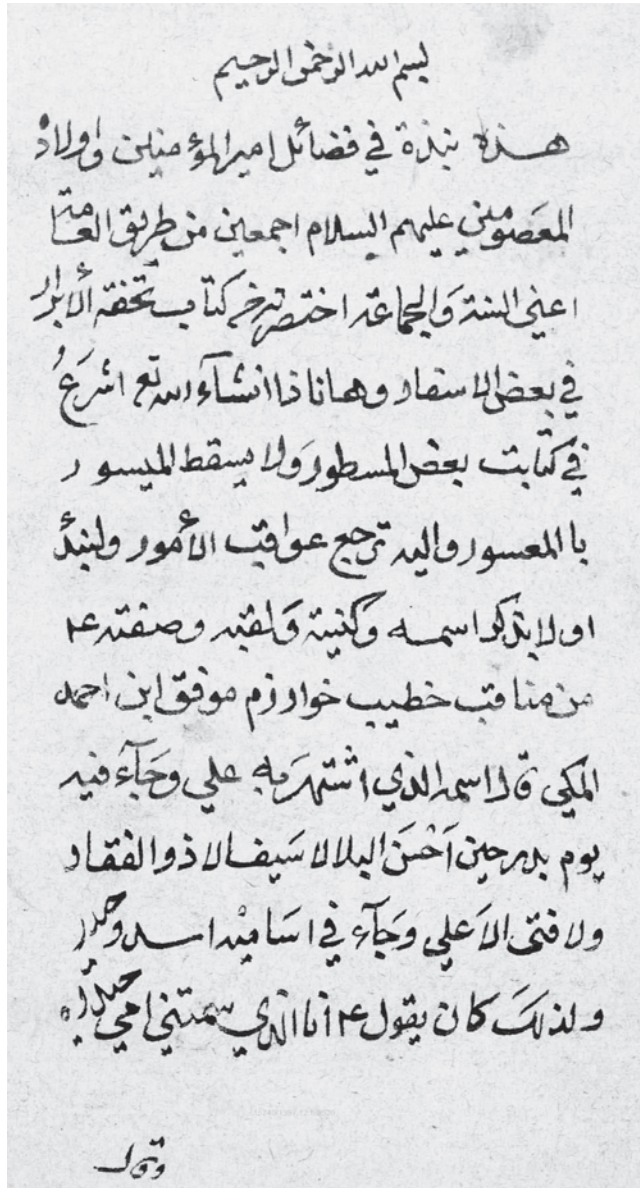 بسم الله الرحمن الرحيم
هذه نبذة في فضائل امير المؤمنين واولاده
المعصومين عليهم السلام اجمعين من طريق العامة
اعني السنة والجماعة اختصرته من كتاب تحفة الأبرار
في بعض الاسفار وها ناذا انشآء الله تع اشرعُ
في كتابت بعض المسطور وَلا يسقط الميسور
با المعسور واليه ترجع عواقب الأمور ولنبدأ
اولا بذكر اسمه وكنيته وَلقبه وصفته ع
من مناقب خطيب خوارزم موفق ابن احمد
المكي قال اسمه الذي اشتهَر به علي وجَآء فيه
يوم بدر حين اَحْسَن البلا لا سَيف الا ذو الفقار
ولا فتى الاَ علي وجَآء في اسَاميْه اسد وحيدر
ولذلكَ كان يقول ع انا الذي سمتني امي حيدره
وقال